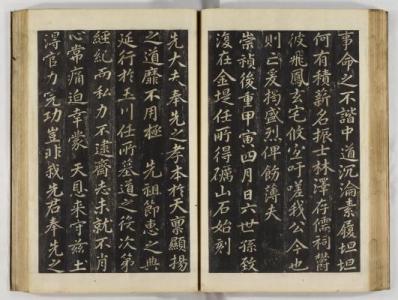 事命之不諧中道沉淪素履坦坦
何有積薪名振士林澤存儒祠欝
彼飛鳳玄宅攸寧吁嗟我公今也
則亡爰獨盛烈俾飭薄夫
崇禎後重甲寅四月日六世孫致
復在金堤任所得礪山石始刻
先大夫奉先之孝本扵天稟顯揚
之道靡不用極　先祖節惠之典
延行扵玉川任所墓道之役次第
經紀而私力不逮齎志未就不肖
心常痛迫幸蒙　天恩來守玆土
得官力完功豈非我先君奉先之